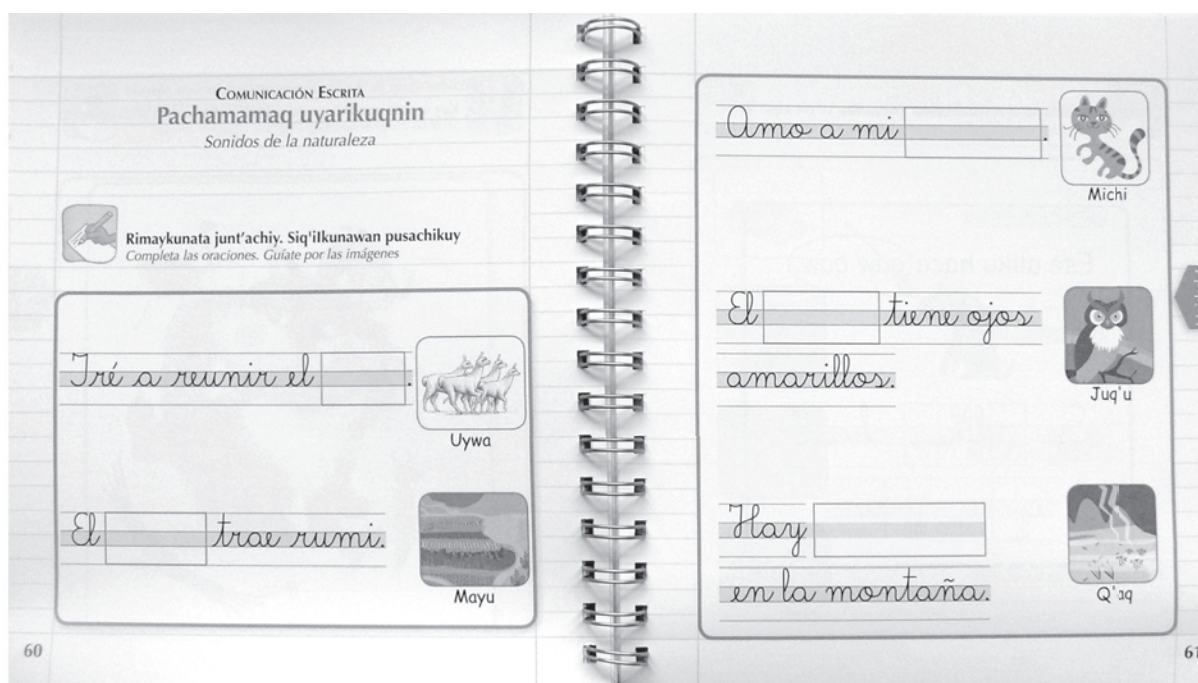 COMUNICACIÓN ESCRITA
Pachamamaq uyarikuqnin
Sonidos de la naturaleza
Rimaykunata junt'achiy. Siq'iikunawan pusachikuy
Completa las oraciones. Guíate por las imágenes
Iré a reunir el .
Uywa
El trae rumi.
Mayu
60
Amo a mi .
Michi
El tiene ojos
amarillos.
Juq'u
Hay
en la montaña.
61